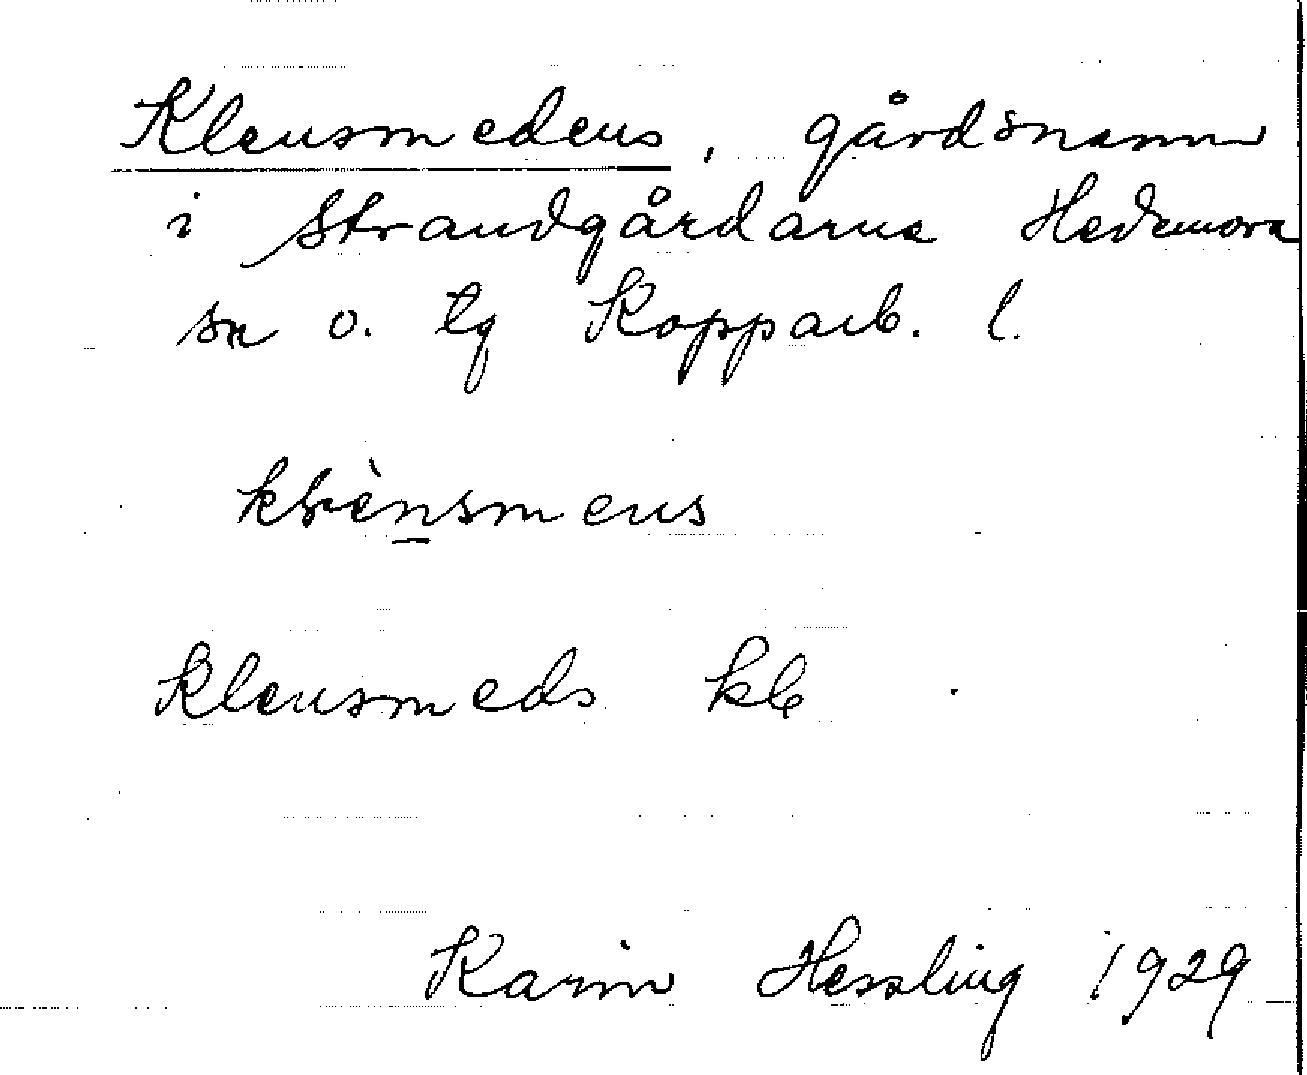 Klensmedens, gårdsnamn
i Strandgårdarna Hedemora
sn o. tg Kopparb. l.
klènsmens
Klensmeds kb
Karin Hessling 1929